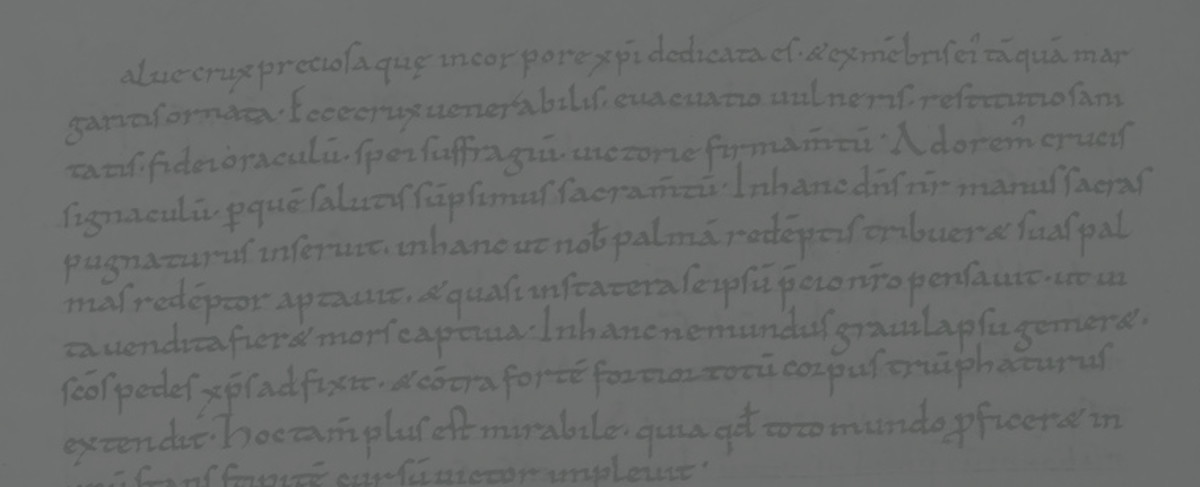 alue crux preciosa quę in corpore xp̄i dedicata es· & ex mēbris ei᾽ tāquā mar
garitis ornata· Ecce crux uenerabilis· euacuatio uulneris· restitutio sani
tatis· fidei oraculū· spei suffragiū· uictorie firmam̄tū· Adorem᾽ crucis
signaculū· ꝑ quē salutis sūpsimus sacram̄tū· In hanc dn̄s nr̄ manus sacras
pugnaturus inseruit· in hanc ut nob̄ palmā redēptis tribueret suas pal
mas redēptor aptauit· & quasi in statera se ipsū p̄cio nr̄o pensauit· ut ui
ta uendita fier& mors captiua· In hanc ne mundus graui lapsu gemer&·
scōs pedes xp̄s adfixit· & cōtra fortē fortior totū corpus triūphaturus
extendit· Hoc tam̄ plus est mirabile· quia qd̄ toto mundo ꝓficer& in
cursū uictor impleuit·